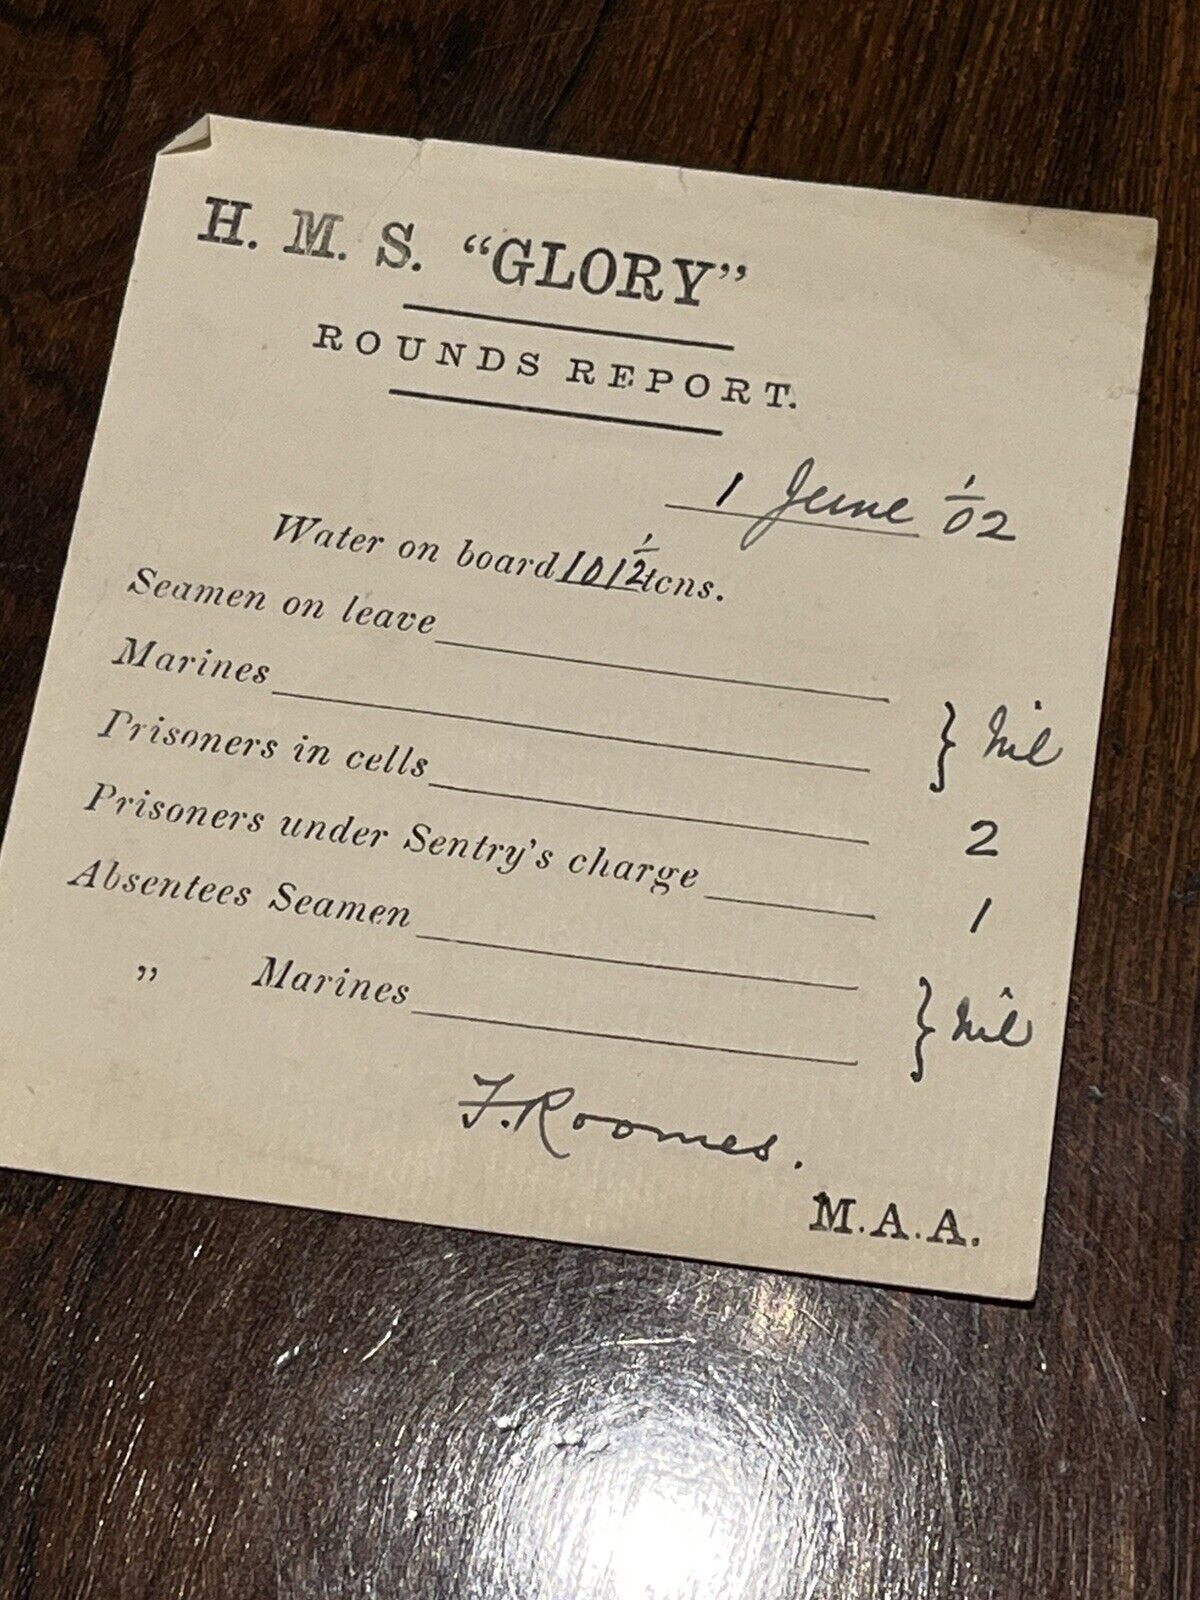 H. M. S. “GLORY”
ROUNDS REPORT.
1 June '/02
Water on board 101½ tons.
Seamen on leave
Marines } Nil
Prisoners in cells 2
Prisoners under Sentry's charge 1
Absentees Seamen
„ Marines } Nil
F. Roomes.
M.A.A.